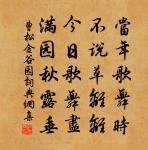 當年歌舞時
不說草離離
今日歌舞盡
滿园秋露垂
曹松金谷园詞典網集